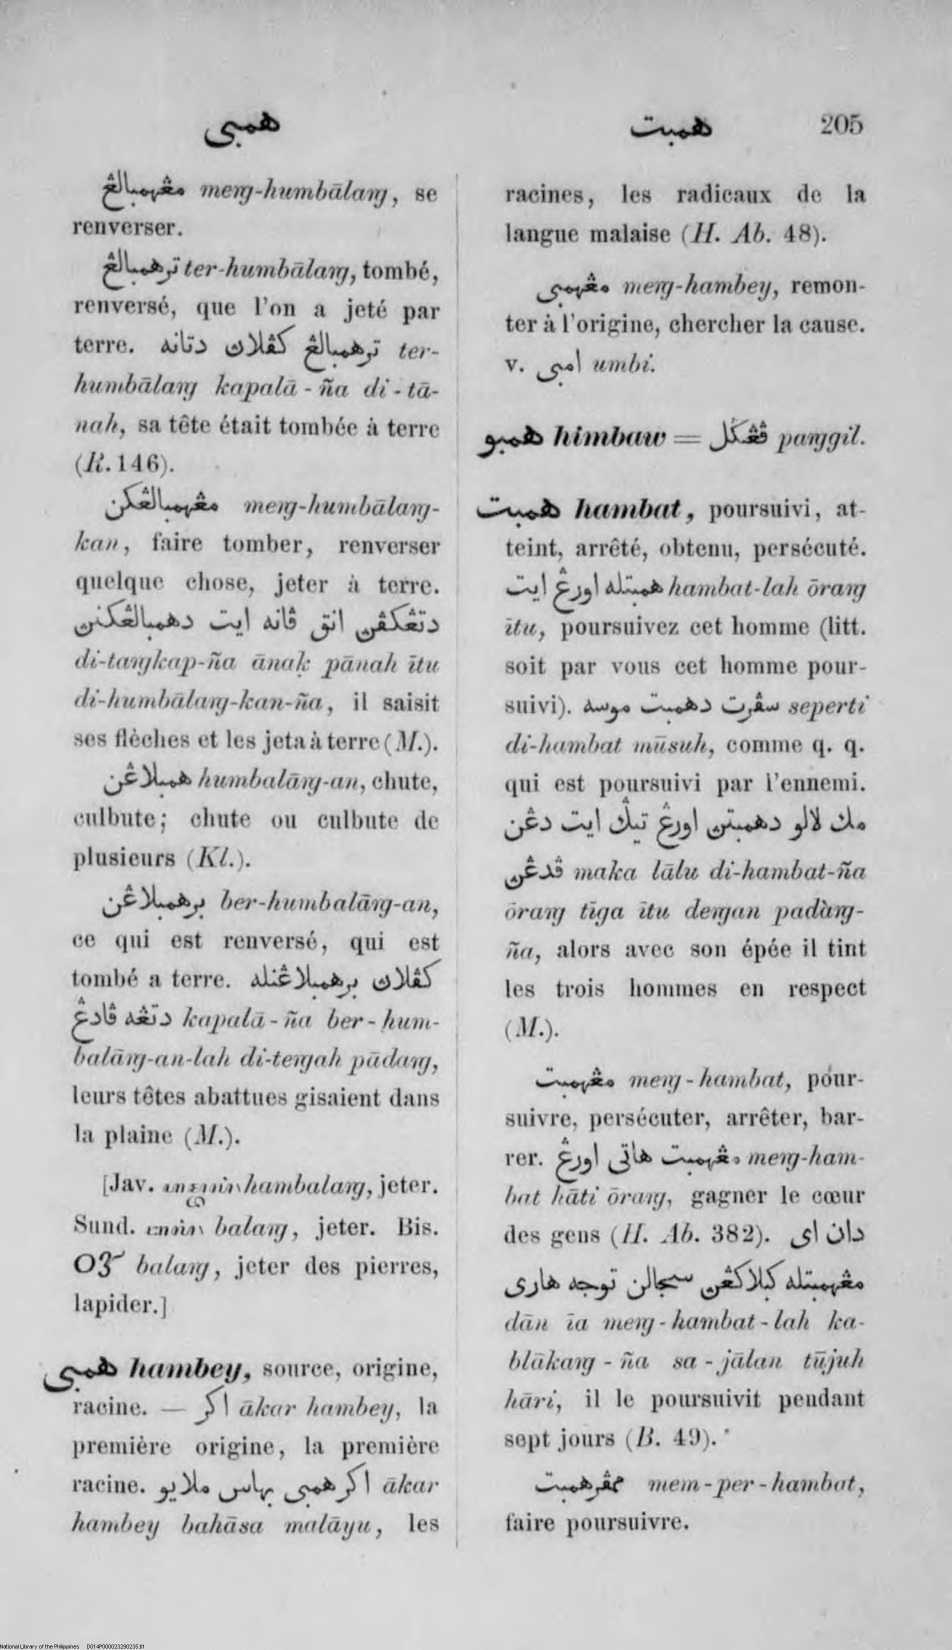 همبي
همبت 205
مڠهمبالڠ merg-humbālarg, se
renverser.
ترهمبالڠ ter-humbālarg, tombé,
renversé, que l'on a jeté par
terre. ترهمبالڠ كڤلاڽ دتانه ter-
humbālarg kapalā-ña di-tā-
nah, sa tête était tombée à terre
(R. 146).
مڠهمبالڠكن merg-humbālarg-
kan, faire tomber, renverser
quelque chose, jeter à terre.
دتڠكڤڽ انق ڤانه ايت دهمبالڠكنڽ
di-targkap-ña ānaḳ pānah ītu
di-humbālarg-kan-ña, il saisit
ses flèches et les jeta à terre (M.).
همبلاڠن humbalārg-an, chute,
culbute; chute ou culbute de
plusieurs (Kl.).
برهمبلاڠن ber-humbalārg-an,
ce qui est renversé, qui est
tombé a terre. كڤلاڽ برهمبلاڠنله
دتڠه ڤادڠ kapalā-ña ber-hum-
balārg-an-lah di-tergah pādarg,
leurs têtes abattues gisaient dans
la plaine (M.).
[Jav. hambalarg, jeter.
Sund. balarg, jeter. Bis.
balarg, jeter des pierres,
lapider.]
همبي hambey, source, origine,
racine. — اكر ākar hambey, la
première origine, la première
racine. اكر همبي بهاس ملايو ākar
hambey bahāsa malāyu, les
racines, les radicaux de la
langue malaise (H. Ab. 48).
مڠهمبي merg-hambey, remon-
ter à l'origine, chercher la cause.
v. امبي umbi.
همبو himbaw = ڤڠݢل parggil.
همبت hambat, poursuivi, at-
teint, arrêté, obtenu, persécuté.
همبتله اورڠ ايت hambat-lah ōrarg
ītu, poursuivez cet homme (litt.
soit par vous cet homme pour-
suivi). سڤرت دهمبت موسه seperti
di-hambat mūsuh, comme q. q.
qui est poursuivi par l'ennemi.
مك لالو دهمبتڽ اورڠ تيݢ ايت دڠن
ڤدڠڽ maka lālu di-hambat-ña
ōrarg tīga ītu dergan padàrg-
ña, alors avec son épée il tint
les trois hommes en respect
(M.).
مڠهمبت merg-hambat, pour-
suivre, persécuter, arrêter, bar-
rer. مڠهمبت هاتي اورڠ merg-ham-
bat hāti ōrarg, gagner le cœur
des gens (H. Ab. 382). دان اي
مڠهمبتله كبلاكڠڽ سجالن توجه هاري
dān īa merg-hambat-lah ka-
blākarg-ña sa-jālan tūjuh
hāri, il le poursuivit pendant
sept jours (B. 49).
ممڤرهمبت mem-per-hambat,
faire poursuivre.
National Library of the Philippines